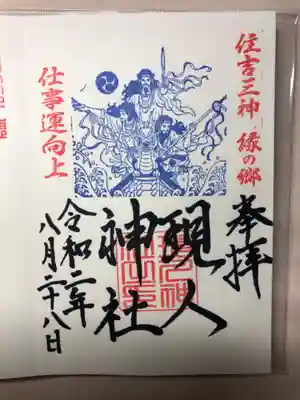 奉拝
住吉三神 縁の郷
現人
神社
仕事運向上
令和二年
八月二十八日